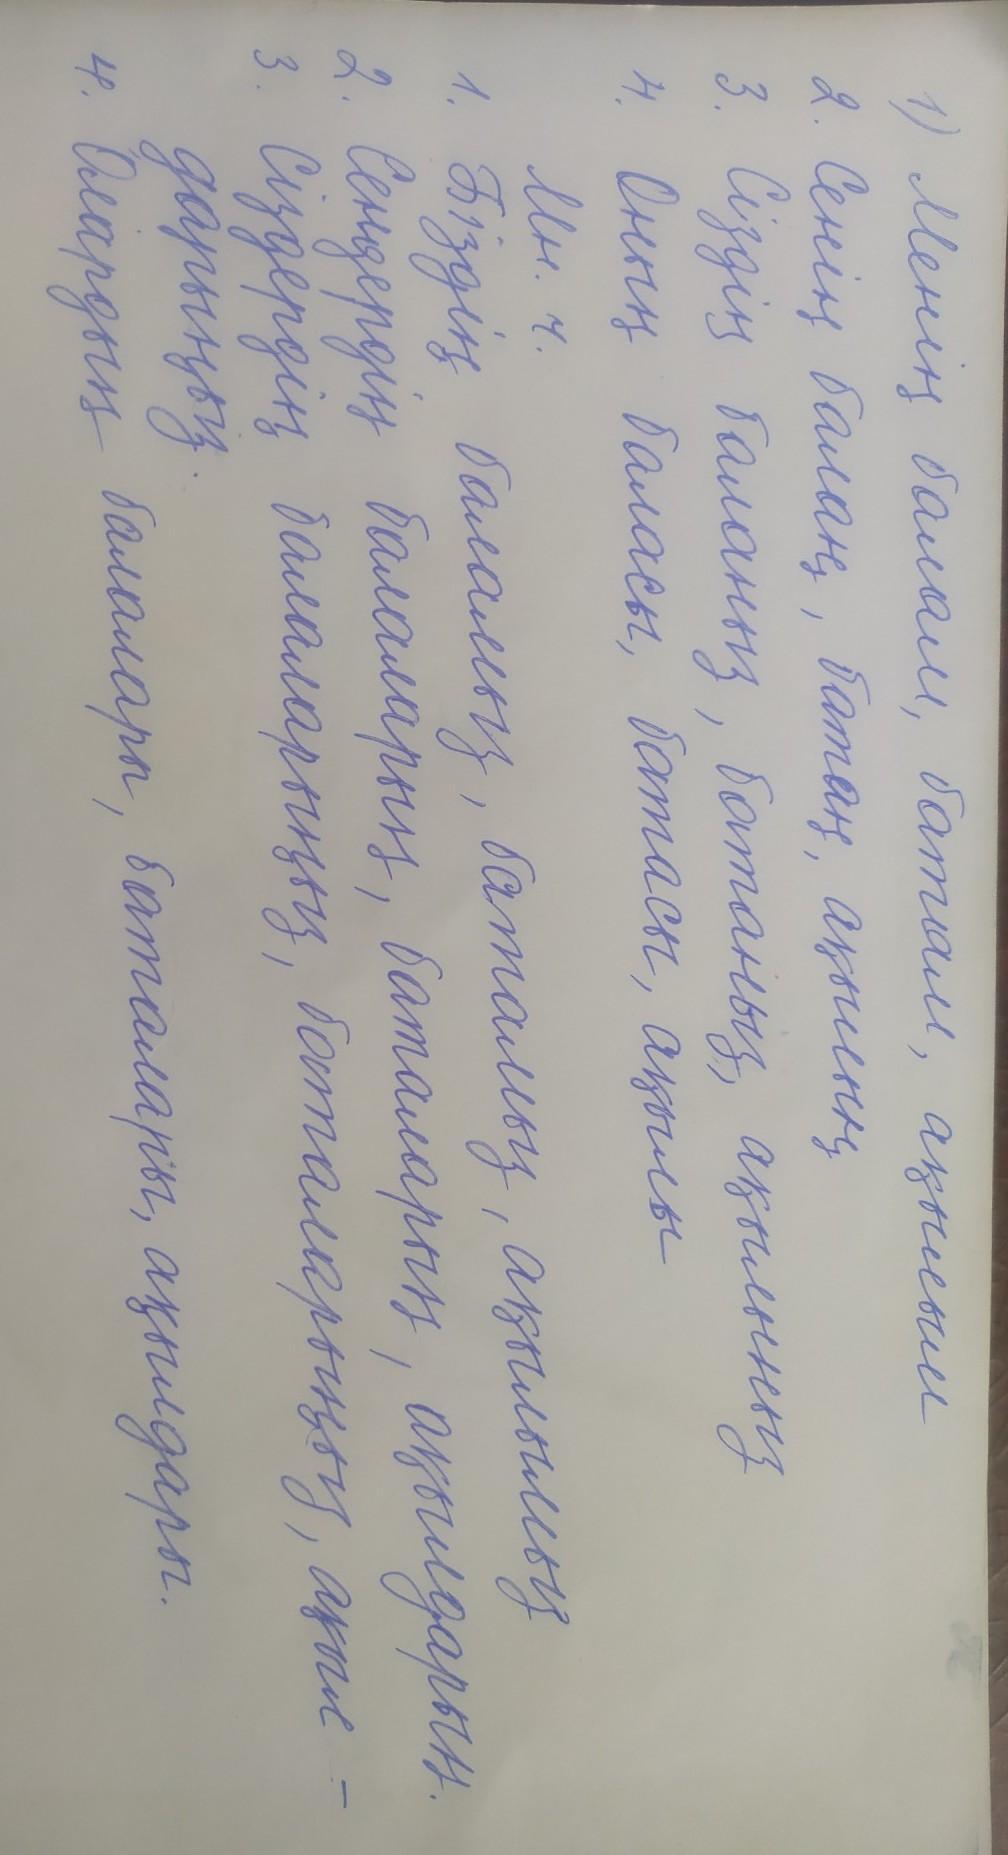 1) Менің балам, батам, ақылым
2. Сенің балаң, батаң, ақылың
3. Сіздің балаңыз, батаңыз, ақылыңыз
4. Оның баласы, батасы, ақылы
Мн. ч.
1. Біздің баламыз, батамыз, ақылымыз
2. Сендердің балаларың, баталарың, ақылдарың.
3. Сіздердің балаларыңыз, баталарыңыз, ақыл -
дарыңыз.
4. Олардың балалары, баталары, ақылдары.